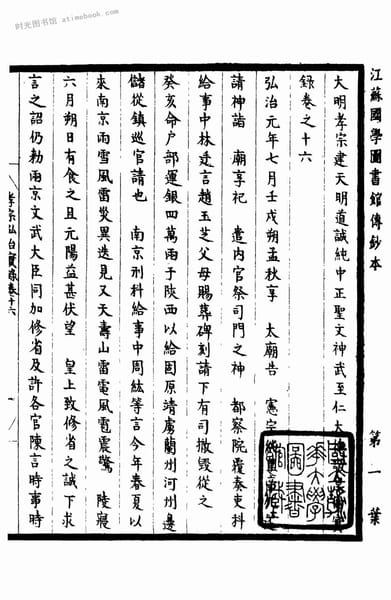 时光图书馆 atimebook.com
江蘇國學圖書館傳鈔本
第一葉
大明孝宗建天明道誠純中正聖文神武至仁大德敬皇帝實
錄卷之十六
弘治元年七月壬戌朔孟秋享 太廟告 憲宗純皇帝
請神詣 廟享祀 遣內官祭司門之神 都察院覆奏吏科
給事中林廷言趙玉芝父母賜葬碑刻請下有司撤毀從之
癸亥命户部運銀四萬兩于陝西以給固原靖虜蘭州河州邊
儲從鎮巡官請也 南京刑科給事中周紘等言今年春夏以
來南京雨雪風雷災異迭見又天壽山雷電風雹震驚 陵寢
六月朔日有食之且亢陽益甚伏望 皇上致修省之誠下求
言之詔仍勅兩京文武大臣同加修省及許各官陳言時事時
孝宗弘治實錄卷十六